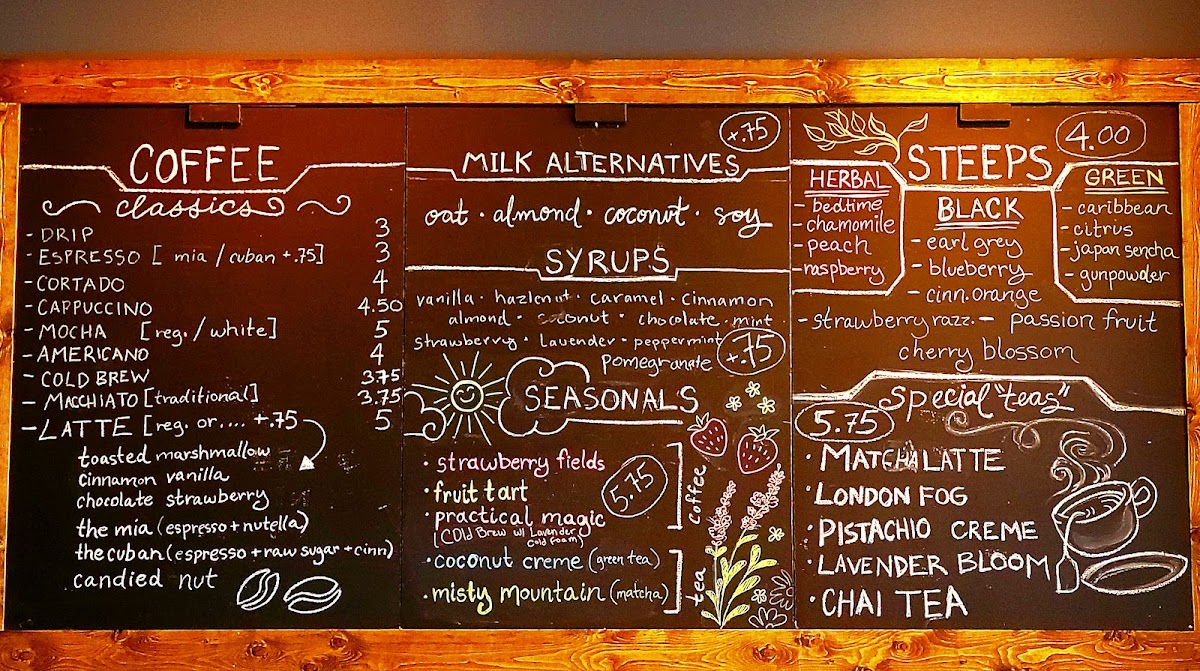 COFFEE
classics
- DRIP 3
- ESPRESSO [ mia / cuban +.75] 3
- CORTADO 4
- CAPPUCCINO 4.50
- MOCHA [reg. / white] 5
- AMERICANO 4
- COLD BREW 3.75
- MACCHIATO [traditional] 3.75
- LATTE [reg. or.... +.75 5
toasted marshmallow
cinnamon vanilla
chocolate strawberry
the mia (espresso + nutella)
the cuban (espresso + raw sugar + cinn)
candied nut
+.75
MILK ALTERNATIVES
oat · almond · coconut · soy
SYRUPS
vanilla · hazlenut · caramel · cinnamon
almond · coconut · chocolate · mint
strawberry · lavender · peppermint
pomegranate +.75
SEASONALS
· strawberry fields
· fruit tart
· practical magic
[COld Brew w/ Lavender
Cold foam]
5.75
coffee
· coconut creme (green tea)
· misty mountain (matcha)
tea
STEEPS 4.00
HERBAL
- bedtime
- chamomile
- peach
- raspberry
BLACK
- earl grey
- blueberry
- cinn. orange
GREEN
- caribbean
- citrus
- japan sencha
- gunpowder
- strawberry razz. - passion fruit
cherry blossom
special "teas"
5.75
· MATCHA LATTE
· LONDON FOG
· PISTACHIO CREME
· LAVENDER BLOOM
· CHAI TEA